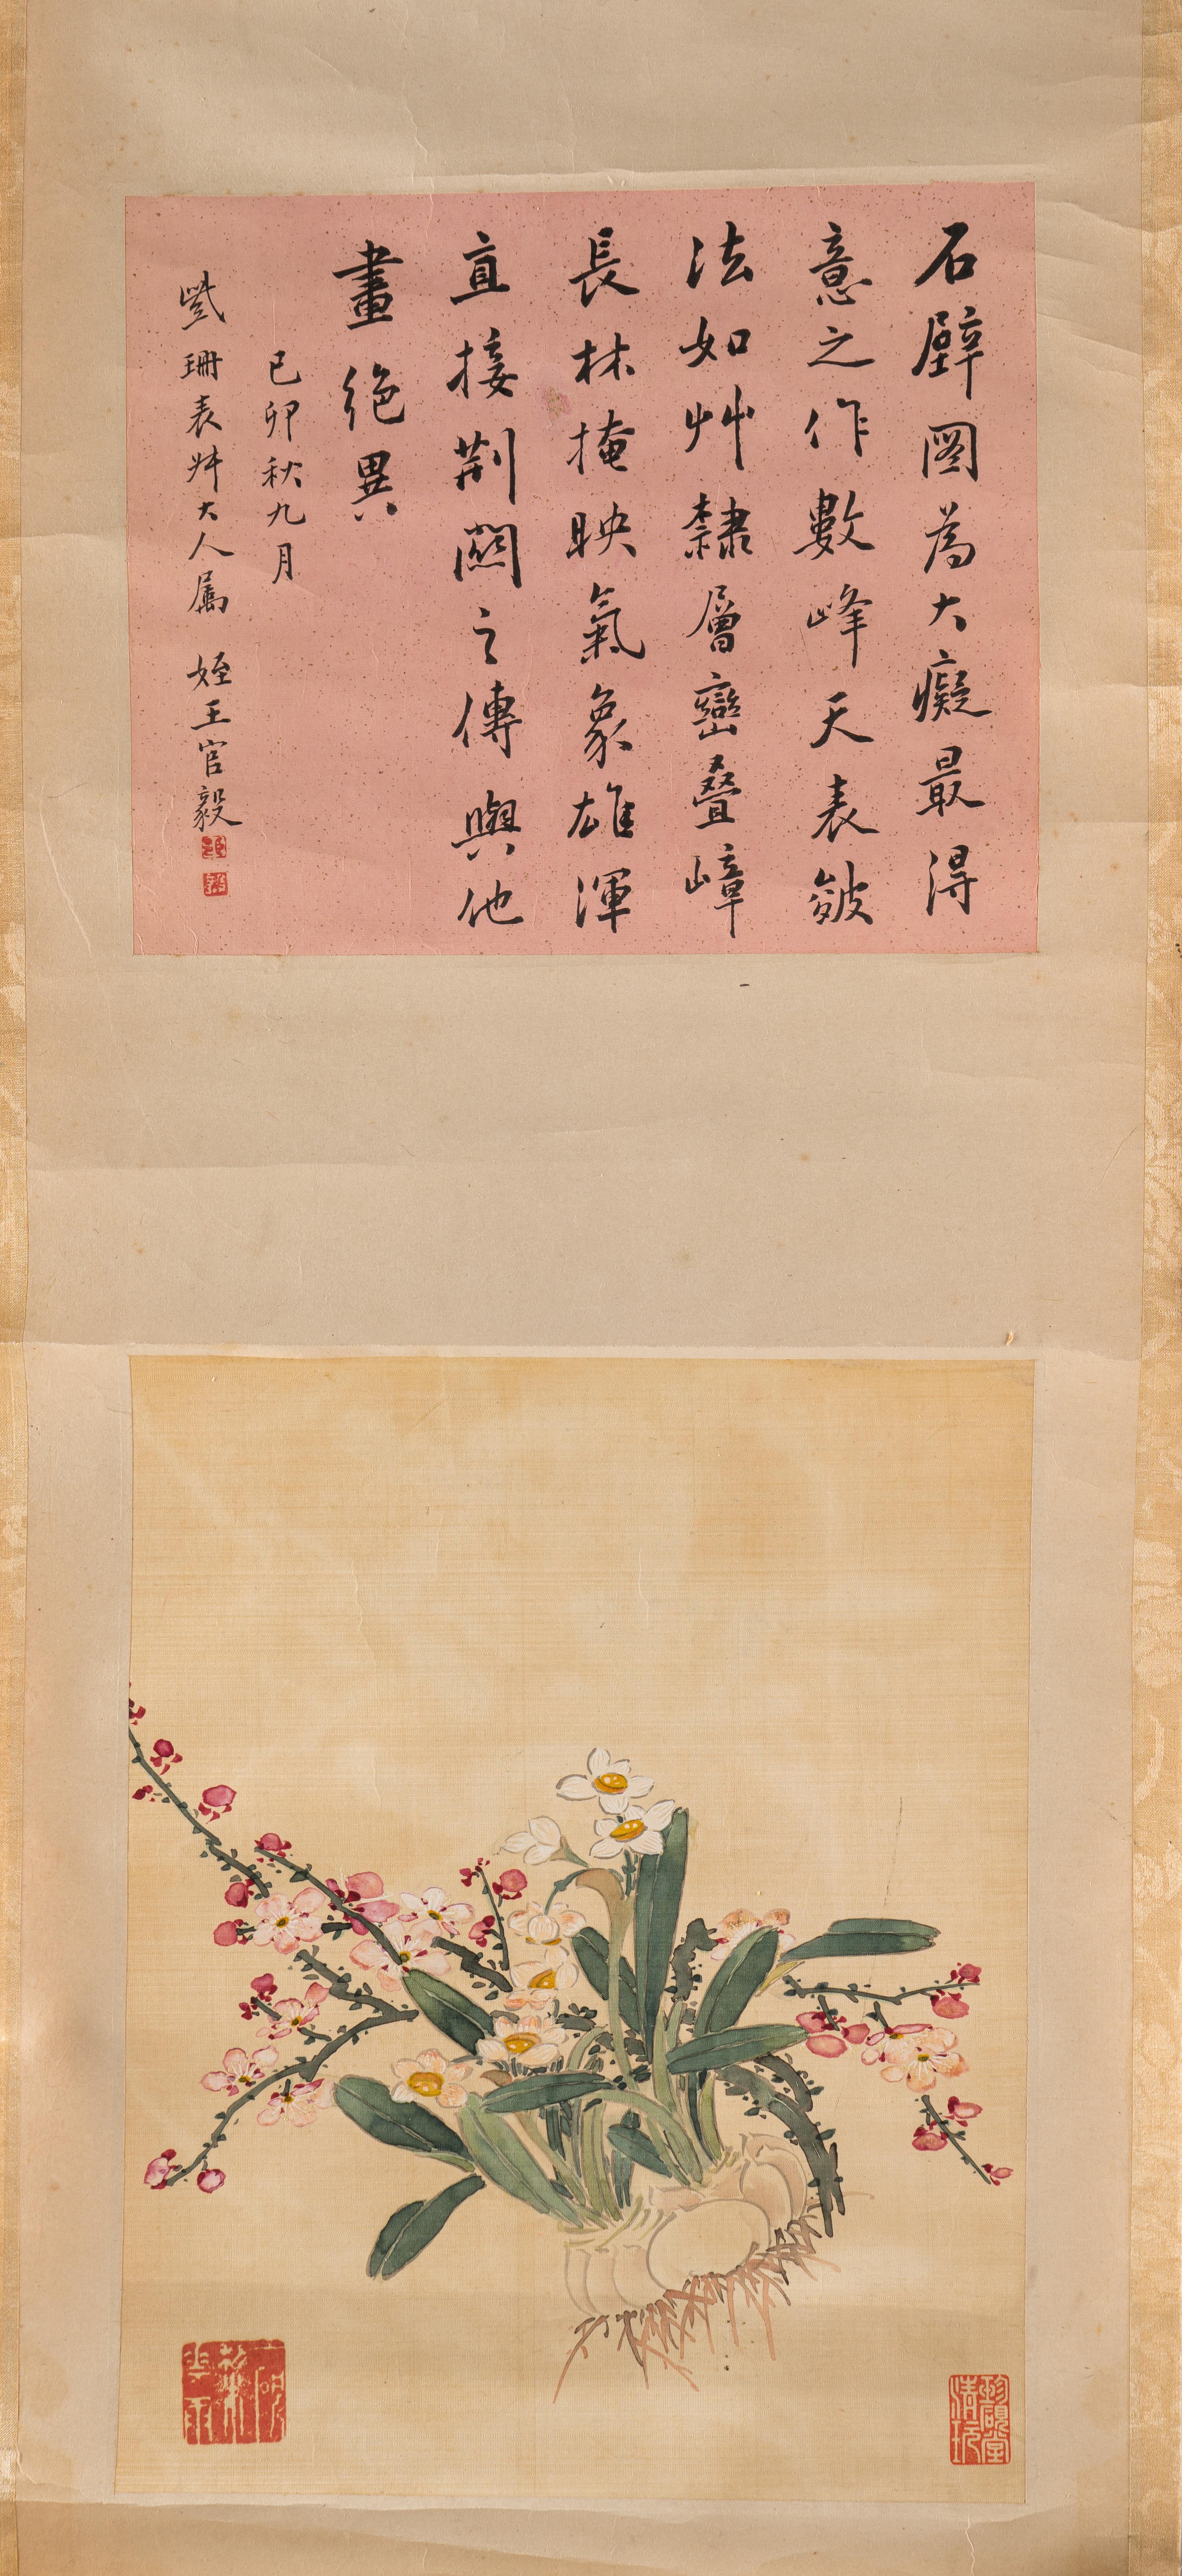 石壁圖為大癡最得
意之作數峰天表皴
法如艸隸層巒疊嶂
長林掩映氣象雄渾
直接荊關之傳與他
畫絕異
己卯秋九月
珊表叔大人属 姪王官毅
珍硯堂
清玩